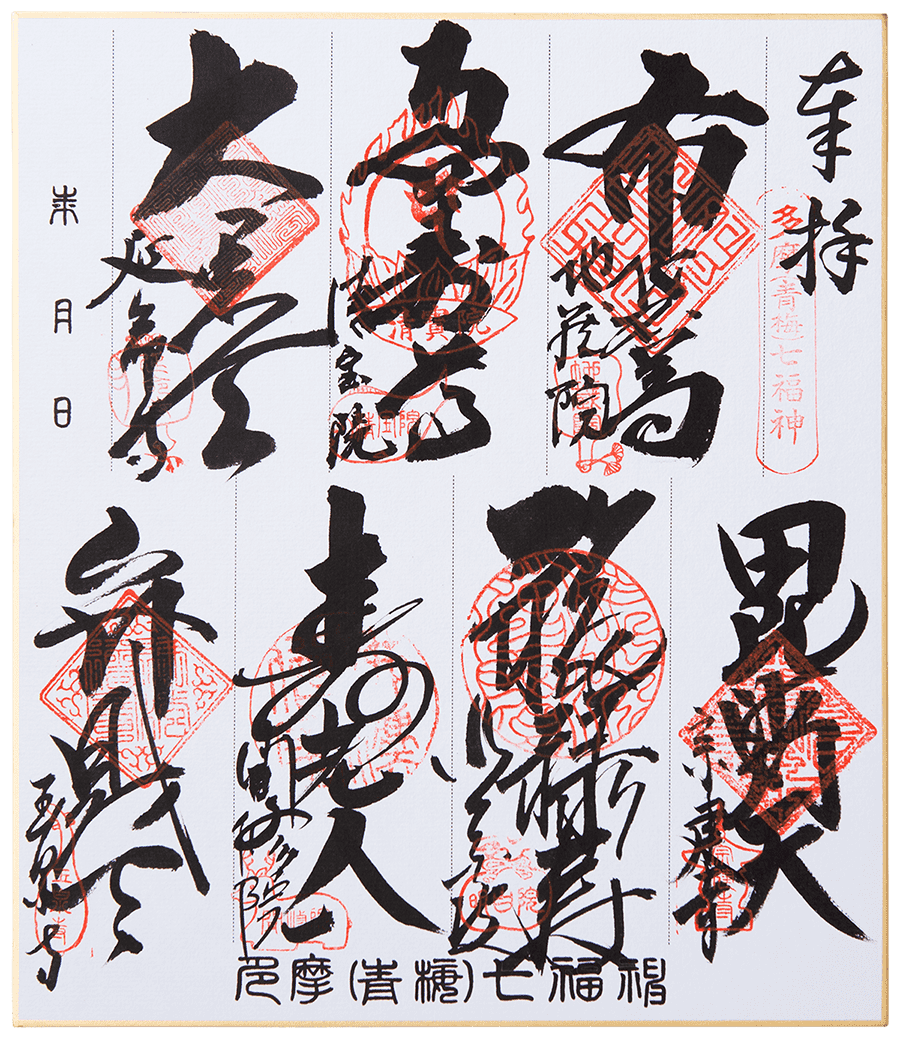 奉拝
多摩青梅七福神
布袋尊
地蔵院
恵比寿
清宝院
大黒天
延命寺
年
月
日
毘沙門天
宗建寺
福禄寿
明白院
寿老人
聞修院
弁財天
玉泉寺
多摩(青梅)七福神